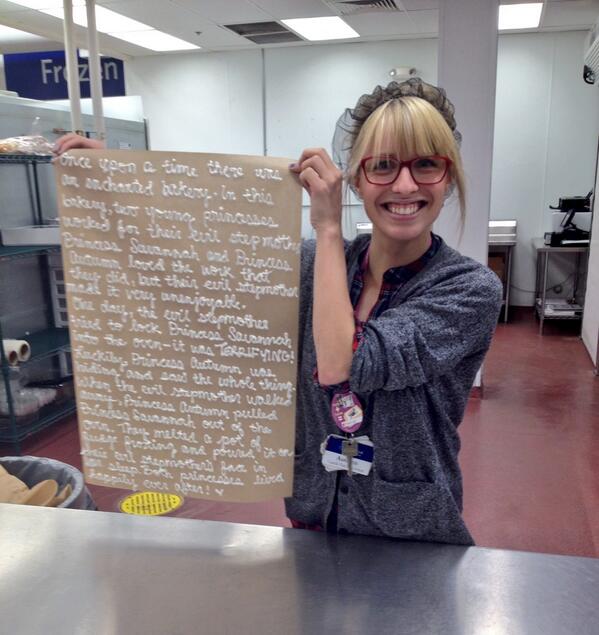 Frozen
Once upon a time there was
an enchanted bakery. In this
bakery, two young princesses
worked for their evil stepmother.
Princess Savannah and Princess
Autumn loved the work that
they did, but their evil stepmother
made it very unenjoyable.
One day, the evil stepmother
tried to lock Princess Savannah
into the oven-it was TERRIFYING!
Luckily, Princess Autumn was
hiding and said the whole thing.
When the evil stepmother walked
away, Princess Autumn pulled
Princess Savannah out of the
oven. They melted a pot of
fudge frosting and poured it on
their evil stepmother's face in
her sleep. Both princesses lived
happily ever after!